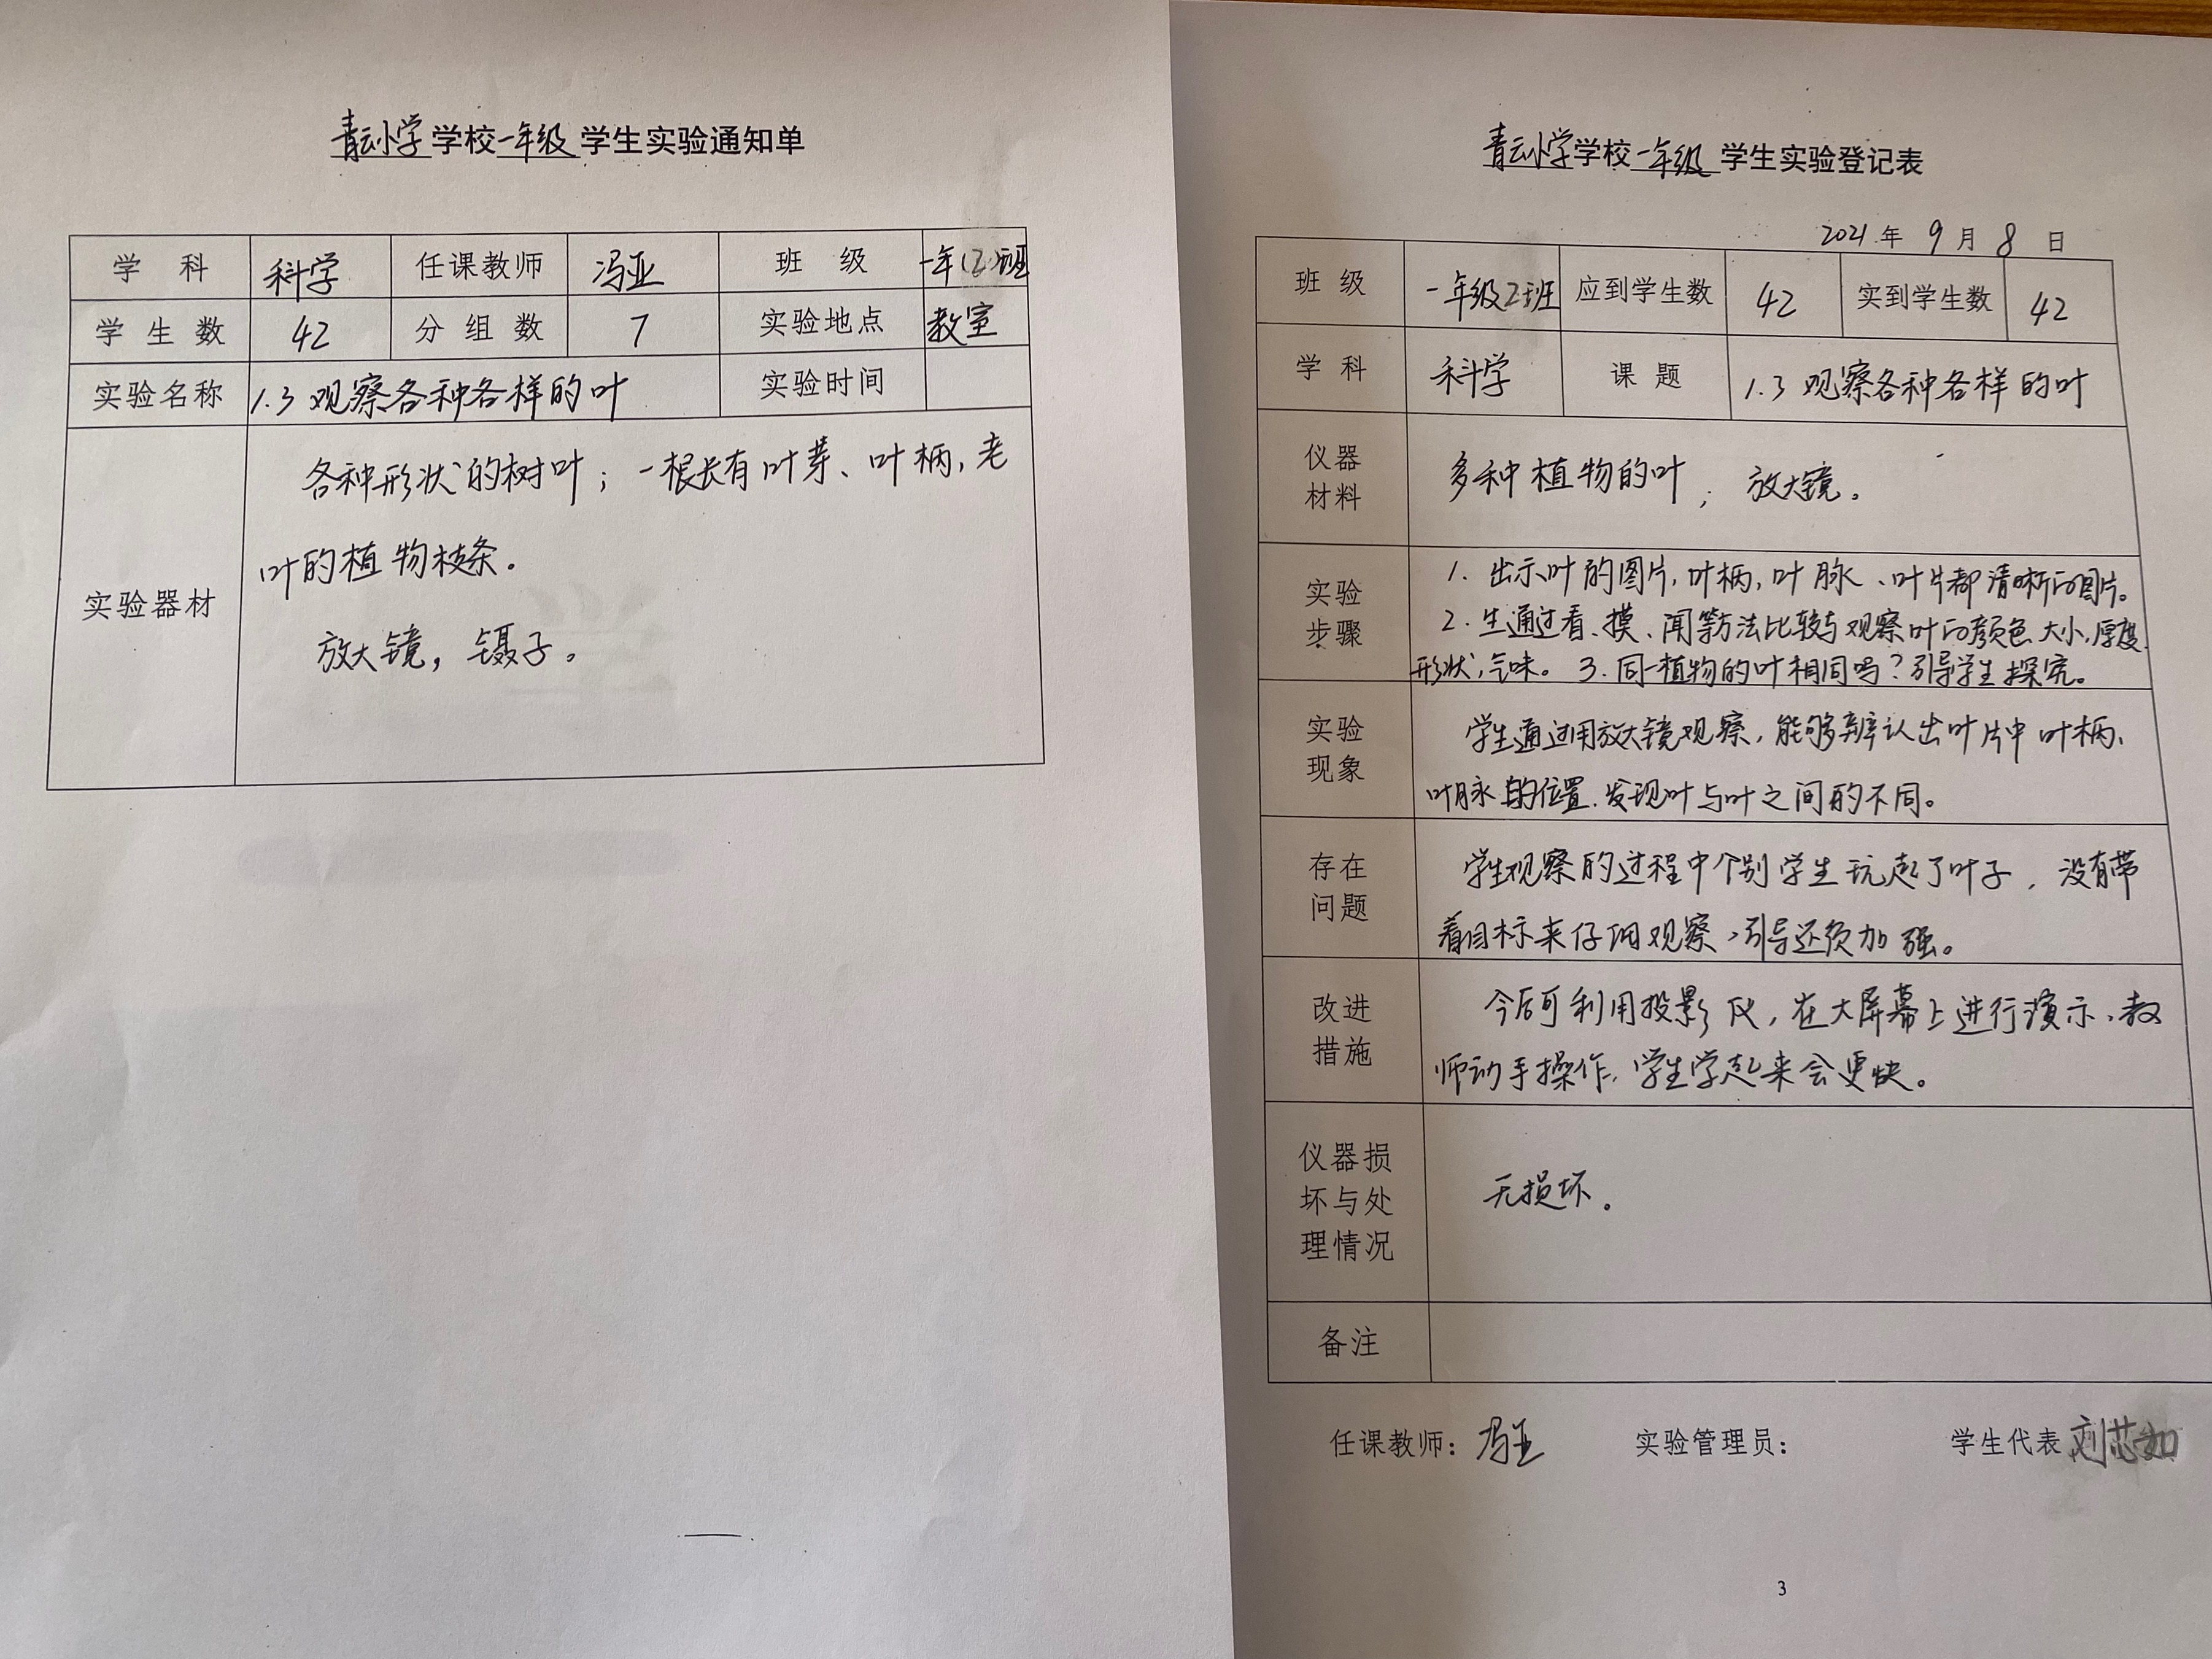 青云小学学校一年级学生实验通知单
学 科 科学 任课教师 冯亚 班 级 一年(2)班
学 生 数 42 分 组 数 7 实验地点 教室
实验名称 1.3 观察各种各样的叶 实验时间
实验器材
各种形状的树叶；一根长有叶芽、叶柄，老
叶的植物枝条。
放大镜，镊子。
青云小学学校一年级学生实验登记表
2021 年 9 月 8 日
班 级 一年级2班 应到学生数 42 实到学生数 42
学 科 科学 课 题 1.3 观察各种各样的叶
仪器
材料
多种植物的叶；放大镜。
实验
步骤
1. 出示叶的图片，叶柄，叶脉、叶片都清晰的图片。
2. 生通过看、摸、闻等方法比较与观察叶的颜色、大小，厚度，
形状，气味。 3. 同一植物的叶相同吗？引导学生探究。
实验
现象
学生通过用放大镜观察，能够辨认出叶片中叶柄、
叶脉的位置，发现叶与叶之间的不同。
存在
问题
学生观察的过程中个别学生玩起了叶子，没有带
着目标来仔细观察，引导还须加强。
改进
措施
今后可利用投影仪，在大屏幕上进行演示，教
师动手操作，学生学起来会更快。
仪器损
坏与处
理情况
无损坏。
备注
任课教师：冯亚 实验管理员： 学生代表 刘芯如
3